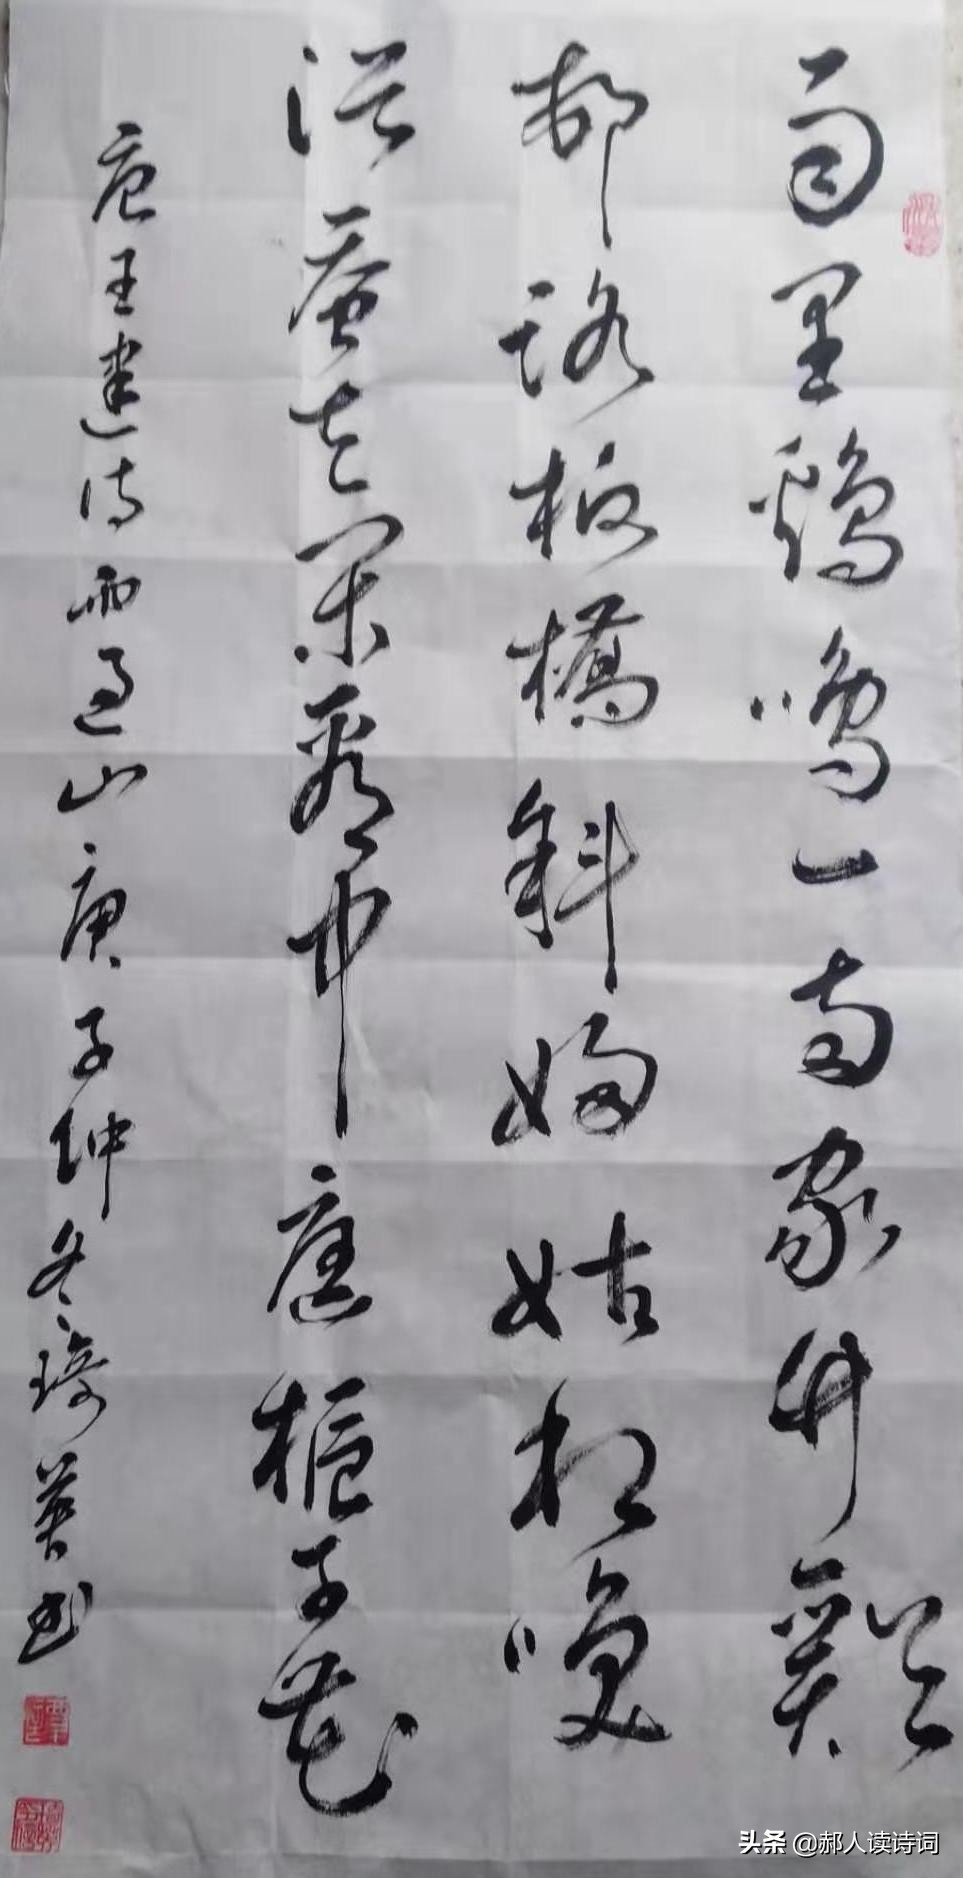 雨里鷄鳴一两家竹谿
邨路板橋斜婦姑相唤
浴蚕去闲看中庭栀子花
唐王建诗雨过山庚子仲冬琦英书
头条 @郝人读诗词